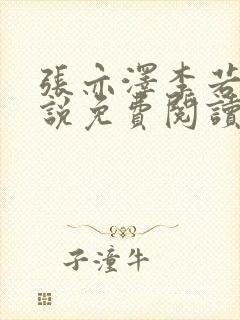 張亦澤李若
說免費閱讀
子潼牛